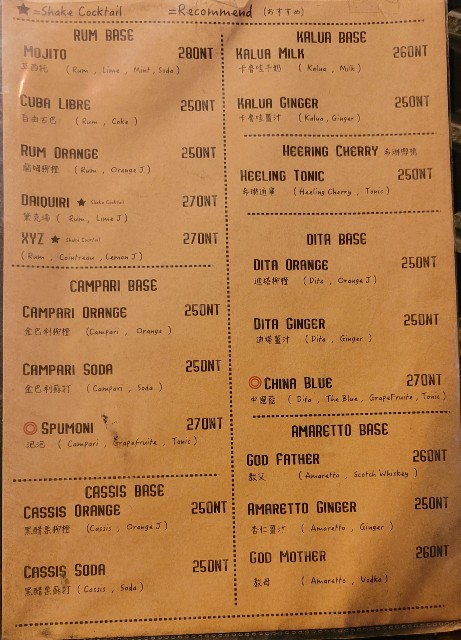 ★=Shake Cocktail ◎=Recommend (おすすめ)
RUM BASE
MOJITO 280NT
莫西托 (Rum, Lime, Mint, Soda)
CUBA LIBRE 250NT
自由古巴 (Rum, Coke)
RUM ORANGE 250NT
蘭姆柳橙 (Rum, Orange J)
DAIQUIRI ★ Shake Cocktail 270NT
黛克瑞 (Rum, Lime J)
XYZ ★ Shake Cocktail 270NT
(Rum, Cointreau, Lemon J)
CAMPARI BASE
CAMPARI ORANGE 250NT
金巴利柳橙 (Campari, Orange)
CAMPARI SODA 250NT
金巴利蘇打 (Campari, Soda)
◎SPUMONI 270NT
泡泡 (Campari, Grapefruite, Tonic)
CASSIS BASE
CASSIS ORANGE 250NT
黑醋栗柳橙 (Cassis, Orange J)
CASSIS SODA 250NT
黑醋栗蘇打 (Cassis, Soda)
KALUA BASE
KALUA MILK 260NT
卡魯哇牛奶 (Kalua, Milk)
KALUA GINGER 250NT
卡魯哇薑汁 (Kalua, Ginger)
HEERING CHERRY 希琳櫻桃
HEELING TONIC 250NT
希琳通寧 (Heeling Cherry, Tonic)
DITA BASE
DITA ORANGE 250NT
迪塔柳橙 (Dita, Orange J)
DITA GINGER 250NT
迪塔薑汁 (Dita, Ginger)
◎CHINA BLUE 270NT
中國藍 (Dita, The Blue, GrapeFruite, Tonic)
AMARETTO BASE
GOD FATHER 260NT
教父 (Amaretto, Scotch Whiskey)
AMARETTO GINGER 250NT
杏仁薑汁 (Amaretto, Ginger)
GOD MOTHER 260NT
教母 (Amaretto, Vodka)